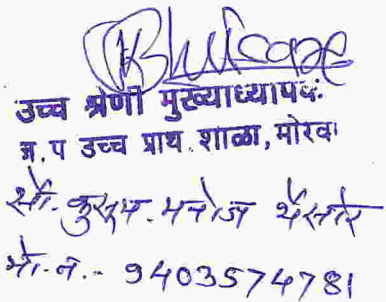 उच्च श्रेणी मुख्याध्यापक
ज. प उच्च प्राथ. शाळा, मोरवा
सौ. कुसुम. मनोज
मो. न. - 9403574781